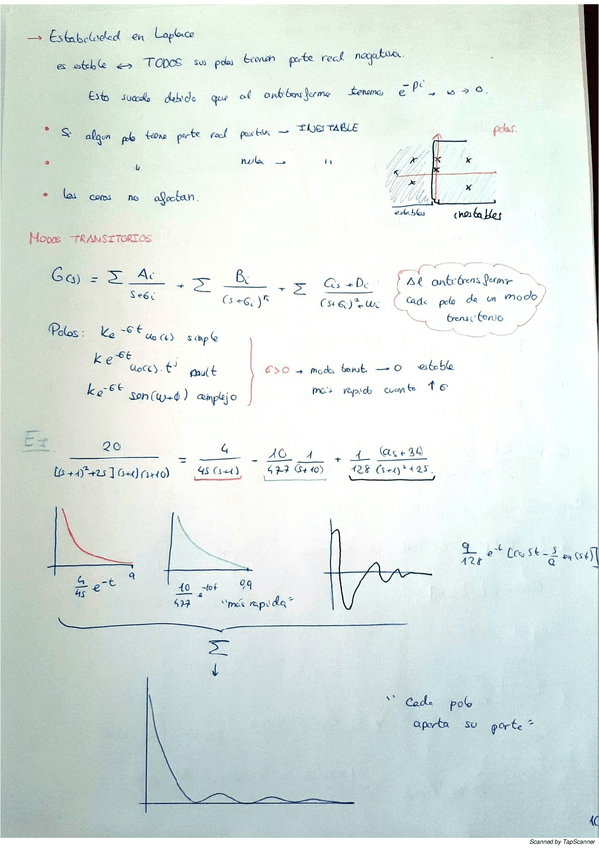 → Estabilidad en Laplace
es estable ↔ TODOS sus polos tienen parte real negativa.
Esto sucede debido que al antitransformar tenemos e^-Pi → ∞ → 0.
• Si algun polo tiene parte real positiva → INESTABLE
• " nula → "
• Los ceros no afectan.
polos.
estables inestables
MODOS TRANSITORIOS
G(s) = Σ Ai/(s+σi) + Σ Bi/(s+σi)^ri + Σ (Cis + Di)/((s+σi)²+ωi
Al antitransformar
cada polo da un modo
transitorio
Polos: Ke^-σt u0(t) simple
Ke^-σt u0(t)·t^j mult
Ke^-σt sen(ω+ϕ) complejo
σ>0 → modo transt → 0 estable
más rapido cuanto ↑σ
Ej
20/([(s+1)²+25](s+1)(s+10)) = 4/(45(s+1)) - 10/477 1/(s+10) + 1/128 (as+34)/((s+1)²+25.
4/45 e^-t
10/477 e^-10t 0,9
"más rapida"
9/128 e^-t [cos 5t -
Σ
"Cada polo
aporta su parte"
10
Scanned by TapScanner